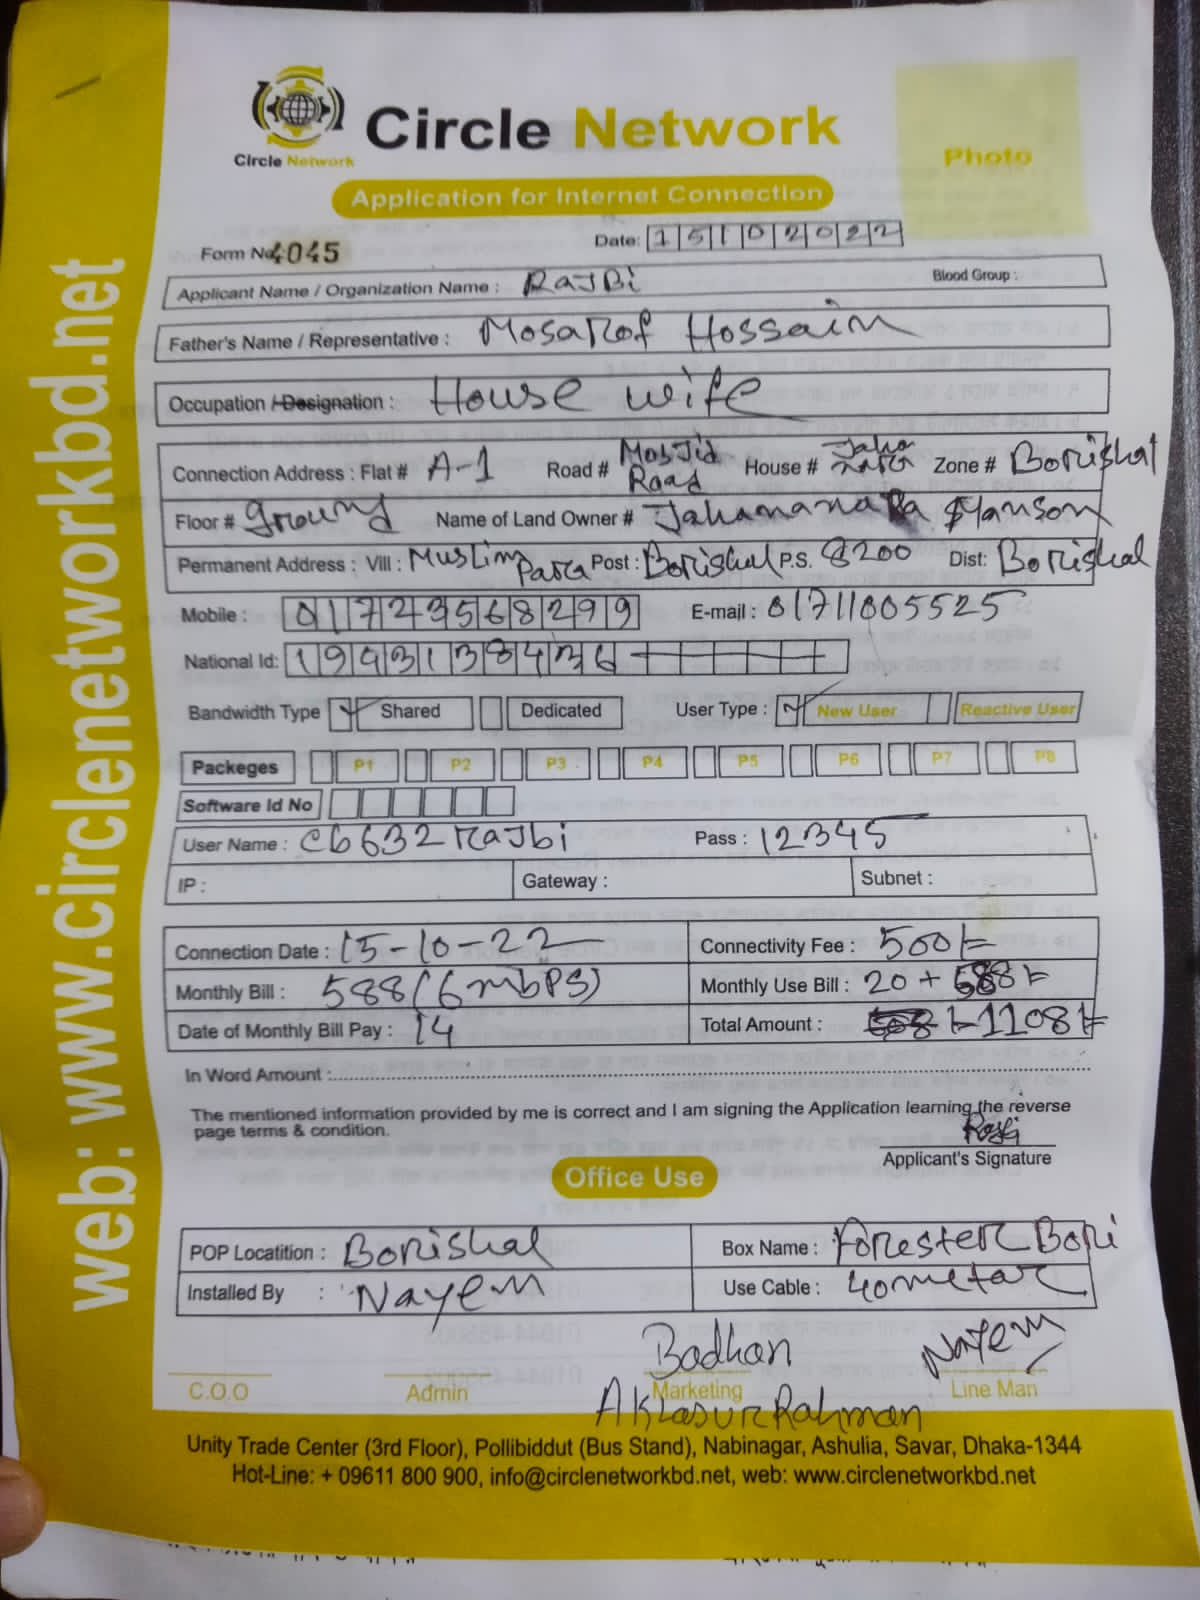 Circle Network
Circle Network
Photo
Application for Internet Connection
Form No 4045
Date: 15102022
Applicant Name / Organization Name : RAJBi
Blood Group :
Father's Name / Representative : Mosarof Hossain
Occupation / Designation : House wife
Connection Address : Flat # A-1 Road # Mosjid Road House # Jaha nara Zone # Borishal
Floor # ground Name of Land Owner # Jahamanara Manson
Permanent Address : Vill : Muslim Para Post : Borishal P.S. 8200 Dist: Borishal
Mobile : 01723568299 E-mail : 01711005525
National Id:
Bandwidth Type Shared Dedicated User Type : New User Reactive User
Packeges P1 P2 P3 P4 P5 P6 P7 P8
Software Id No
User Name : cb632rajbi Pass : 12345
IP : Gateway : Subnet :
Connection Date : 15-10-22 Connectivity Fee : 500/=
Monthly Bill : 588 (6 mbPS) Monthly Use Bill : 20 + 588/=
Date of Monthly Bill Pay : 14 Total Amount : 1108/=
In Word Amount :
The mentioned information provided by me is correct and I am signing the Application learning the reverse
page terms & condition.
Applicant's Signature
Office Use
POP Locatition : Borishal Box Name : Forester Bari
Installed By : Nayem Use Cable : 40metar
Badhan Nayem
C.O.O Admin Marketing Line Man
Aklasur Rahman
Unity Trade Center (3rd Floor), Pollibiddut (Bus Stand), Nabinagar, Ashulia, Savar, Dhaka-1344
Hot-Line: + 09611 800 900, info@circlenetworkbd.net, web: www.circlenetworkbd.net
web: www.circlenetworkbd.net